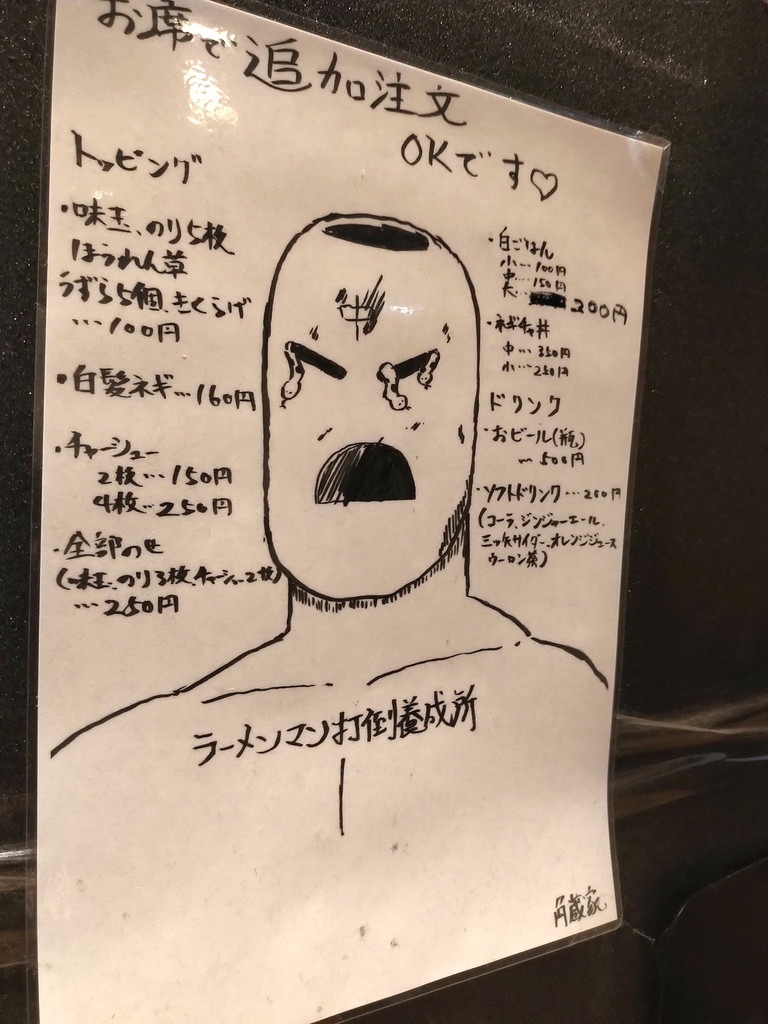 お席で追加注文
OKです♡
トッピング
・味玉、のり5枚
ほうれん草
うずら5個、きくらげ
…100円
・白髪ネギ…160円
・チャーシュー
2枚…150円
4枚…250円
・全部のせ
(味玉、のり3枚、チャーシュー2枚)
…250円
・白ごはん
小…100円
中…150円
大… 200円
・ネギチャ丼
中…350円
小…250円
ドリンク
・おビール(瓶)
…500円
・ソフトドリンク…200円
(コーラ、ジンジャーエール、
三ツ矢サイダー、オレンジジュース
ウーロン茶)
中
ラーメンマン打倒養成所
角蔵家